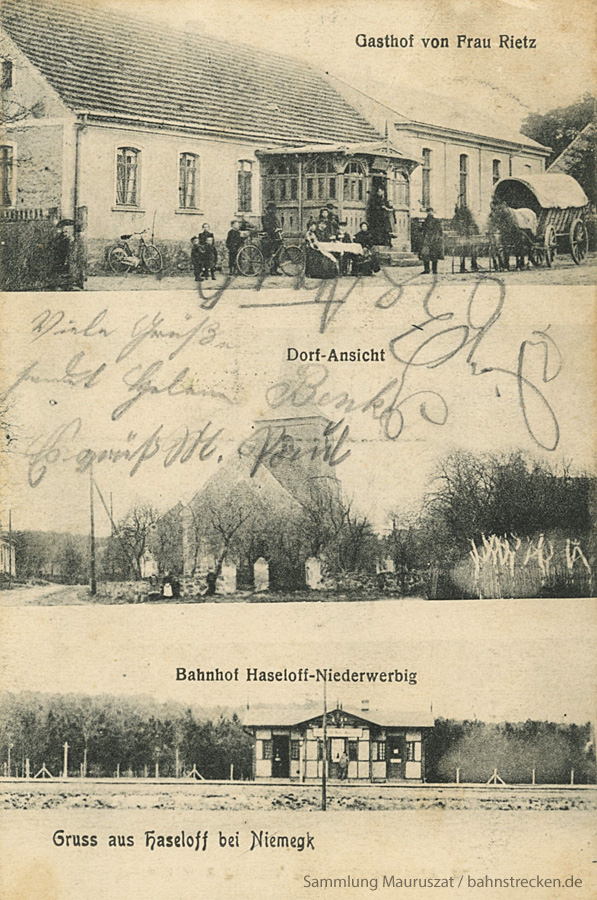 Gasthof von Frau Rietz
Viele Grüße
Dorf-Ansicht
sendet Helene
Es grüßt M. Paul
Bahnhof Haseloff-Niederwerbig
Gruss aus Haseloff bei Niemegk
Sammlung Mauruszat / bahnstrecken.de